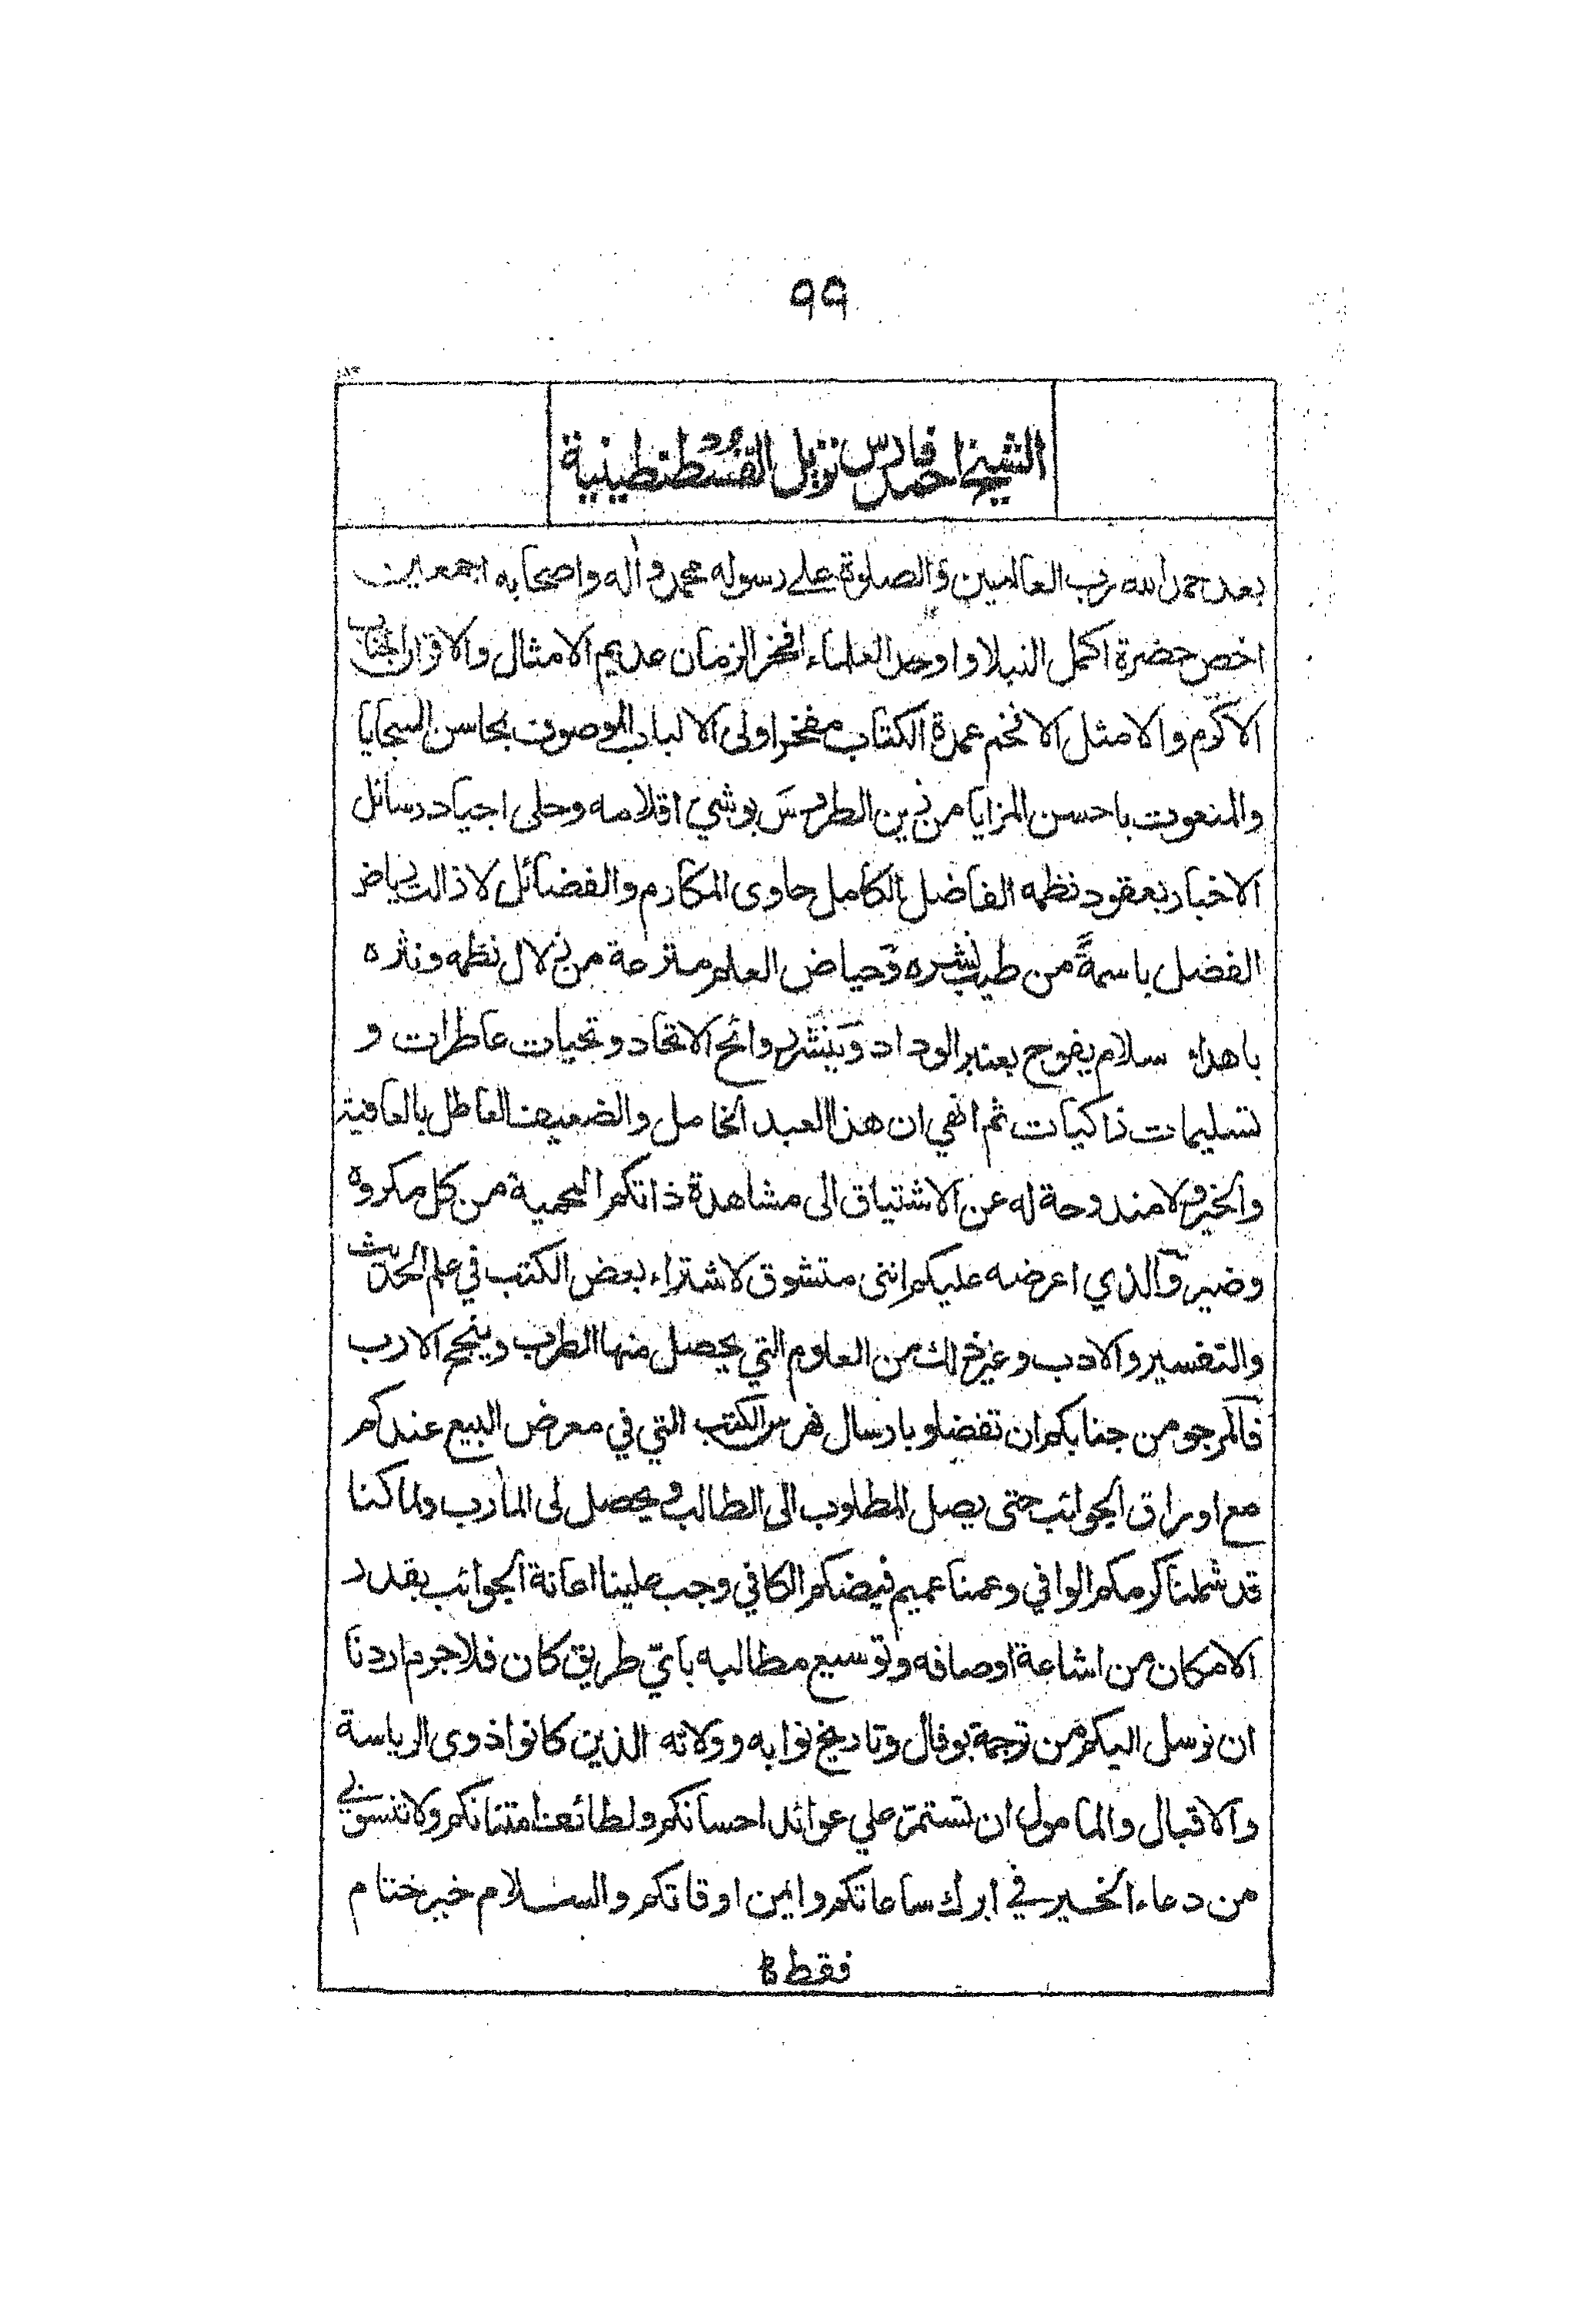 ٩٩
الشيخ احمد فارس نزيل القسطنطينية
بعد حمد الله رب العالمين والصلوة على رسوله محمد وآله واصحابه اجمعين
اخص حضرة اكمل النبلا واوحد العلماء افخر الزمان عديم الامثال والاقران الجناب
الاكرم والامثل الافخم عمدة الكتاب مفخر اولى الالباب الموصوف بمحاسن السجايا
والمنعوت باحسن المزايا من زين الطروس بوشي اقلامه وحلى اجياد رسائل
الاخبار بعقود نظمه الفاضل الكامل حاوى المكارم والفضائل لازالت رياض
الفضل باسمةً من طيب نشره وحياض العلوم مترعة من زلال نظمه ونثره
باهداء سلام يفوح بعنبر الوداد وينشر روائح الاتحاد وتحيات عاطرات و
تسليمات ذاكيات ثم انهي ان هذا العبد الخامل والضعيف العاطل بالعافية
والخير ولا مندوحة له عن الاشتياق الى مشاهدة ذاتكم المحمية من كل مكروه
وضير والذي اعرضه عليكم اننى متشوق لاشتراء بعض الكتب في علم الحديث
والتفسير والادب وغير ذلك من العلوم التي يحصل منها الطرب وينجح الارب
فالمرجو من جنابكم ان تفضلو بارسال فهرس الكتب التي في معرض البيع عندكم
مع اوراق الجوائب حتى يصل المطلوب الى الطالب ويحصل لى المأرب ولما كنا
قد شملنا كرمكم الوافي وعمنا عميم فيضكم الكافي وجب علينا اعانة الجوائب بقدر
الامكان من اشاعة اوصافه وتوسيع مطالبه باي طريق كان فلا جرم اردنا
ان نوسل اليكم من ترجمة بوفال وتاريخ نوابه وولاته الذين كانوا ذوى الرياسة
والاقبال والمامول ان تستمر علي عوائد احسانكم ولطائف امتنانكم ولا تنسوني
من دعاء الخير في ابرك ساعاتكم وايمن اوقاتكم والسلام خير ختام
فقط